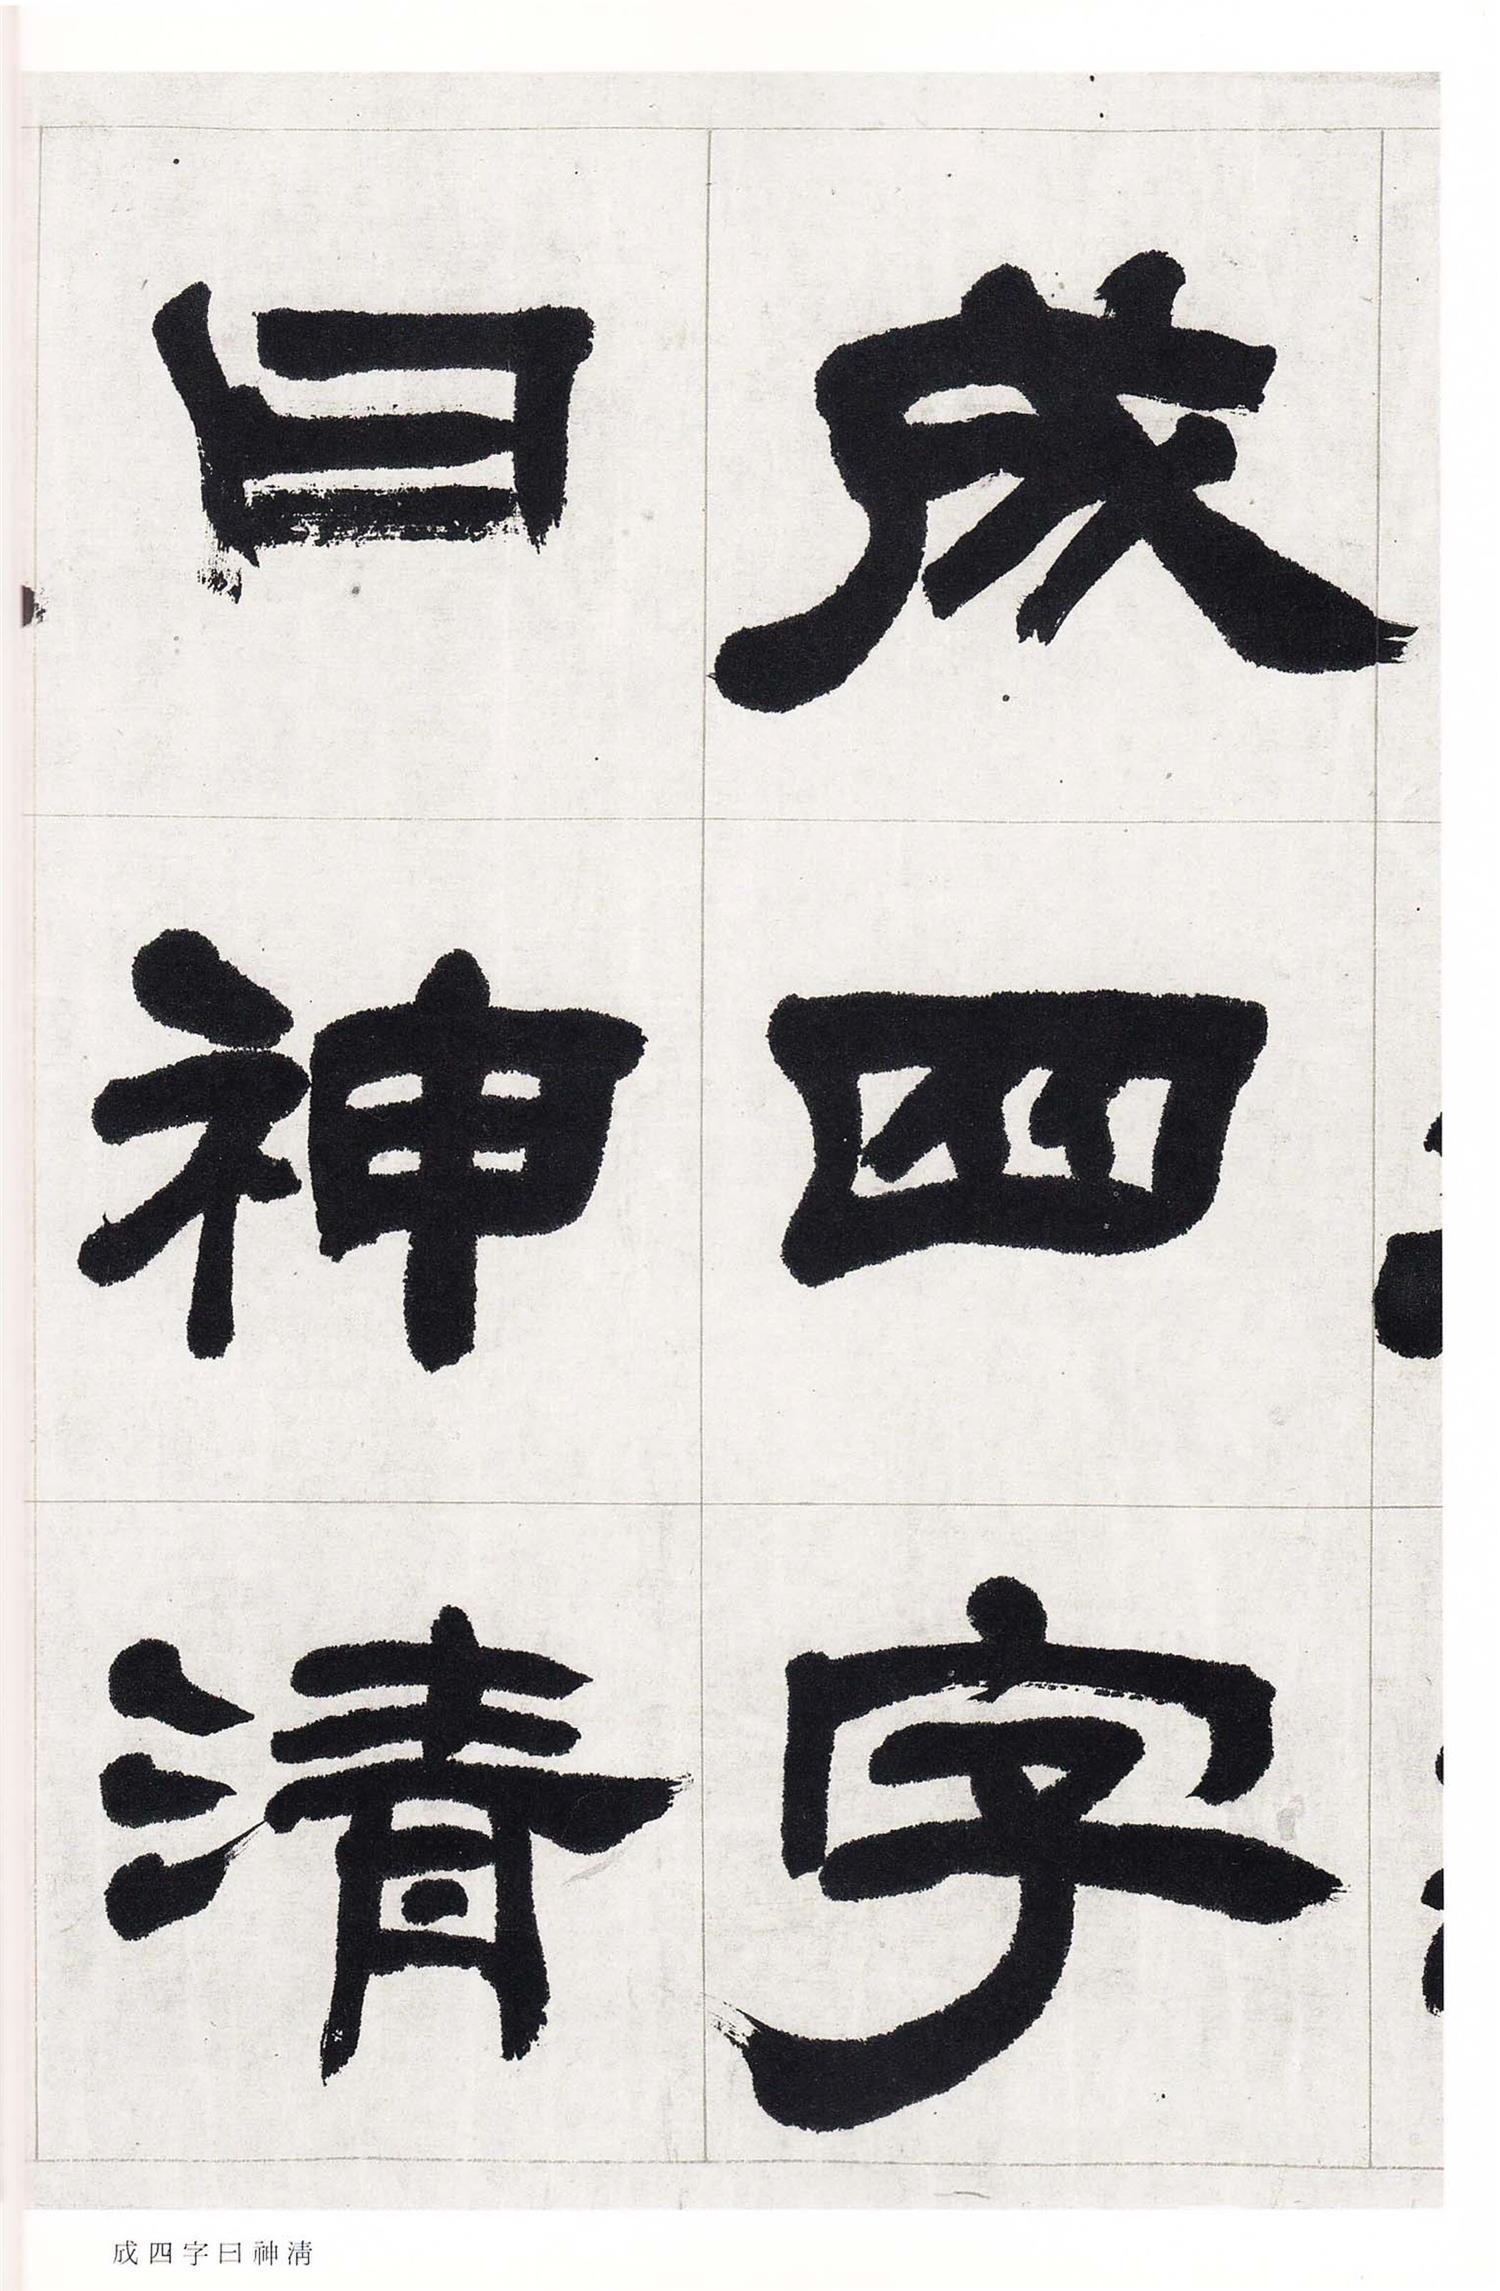 成四字
曰神清
成四字曰神清